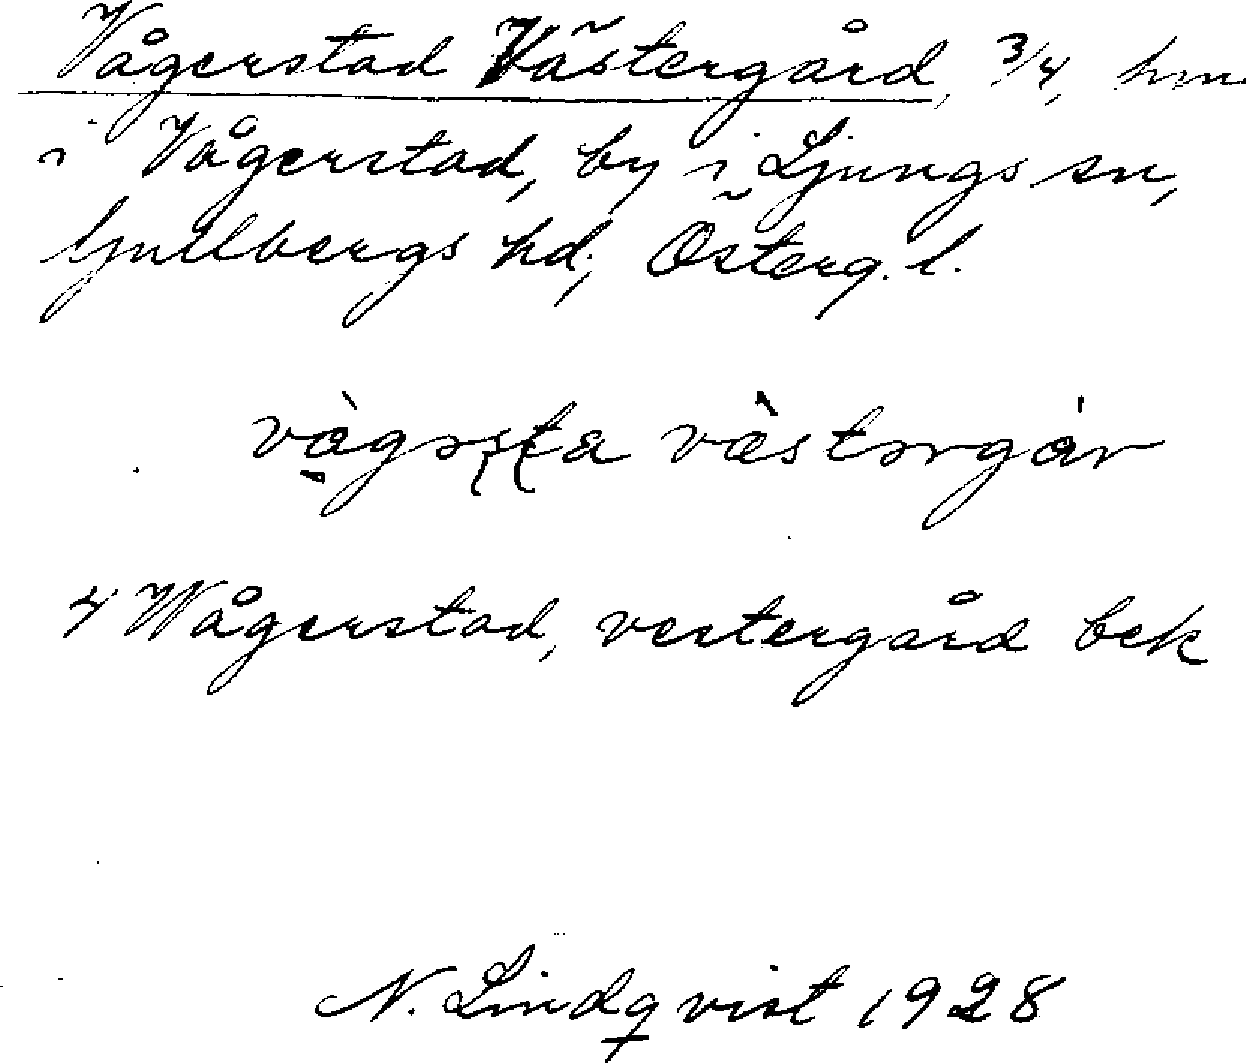 Vågerstad Västergård, 3/4, hm
i Vågerstad, by i Ljungs sn,
Gullbergs hd, Österg. l.
vågsta västergår
4 Wågerstad, vestergård bek
N. Lindqvist 1928